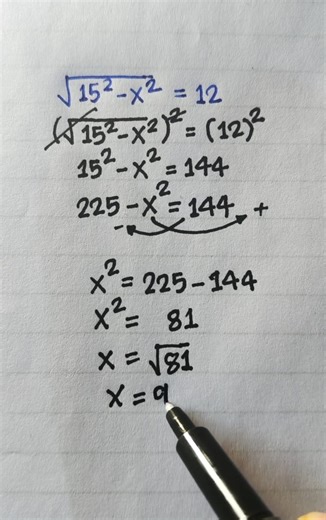 √15² - x² = 12
(√15² - x²)² = (12)²
15² - x² = 144
225 - x² = 144 +
-
x² = 225 - 144
x² = 81
x = √81
x = 9